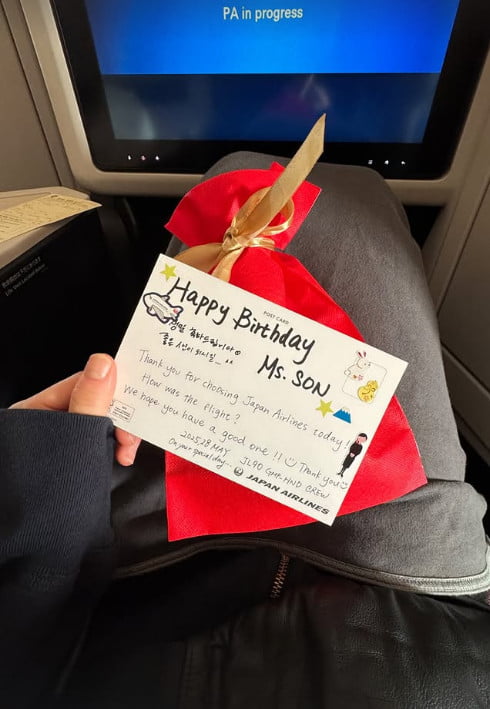 PA in progress
POST CARD
Happy Birthday
Ms. SON
생일 축하드립니다
Thank you for choosing Japan Airlines today!
How was the flight?
We hope you have a good one!! Thank you
2025.28 MAY JL90 GMP-HND CREW
On your special day...
JAPAN AIRLINES